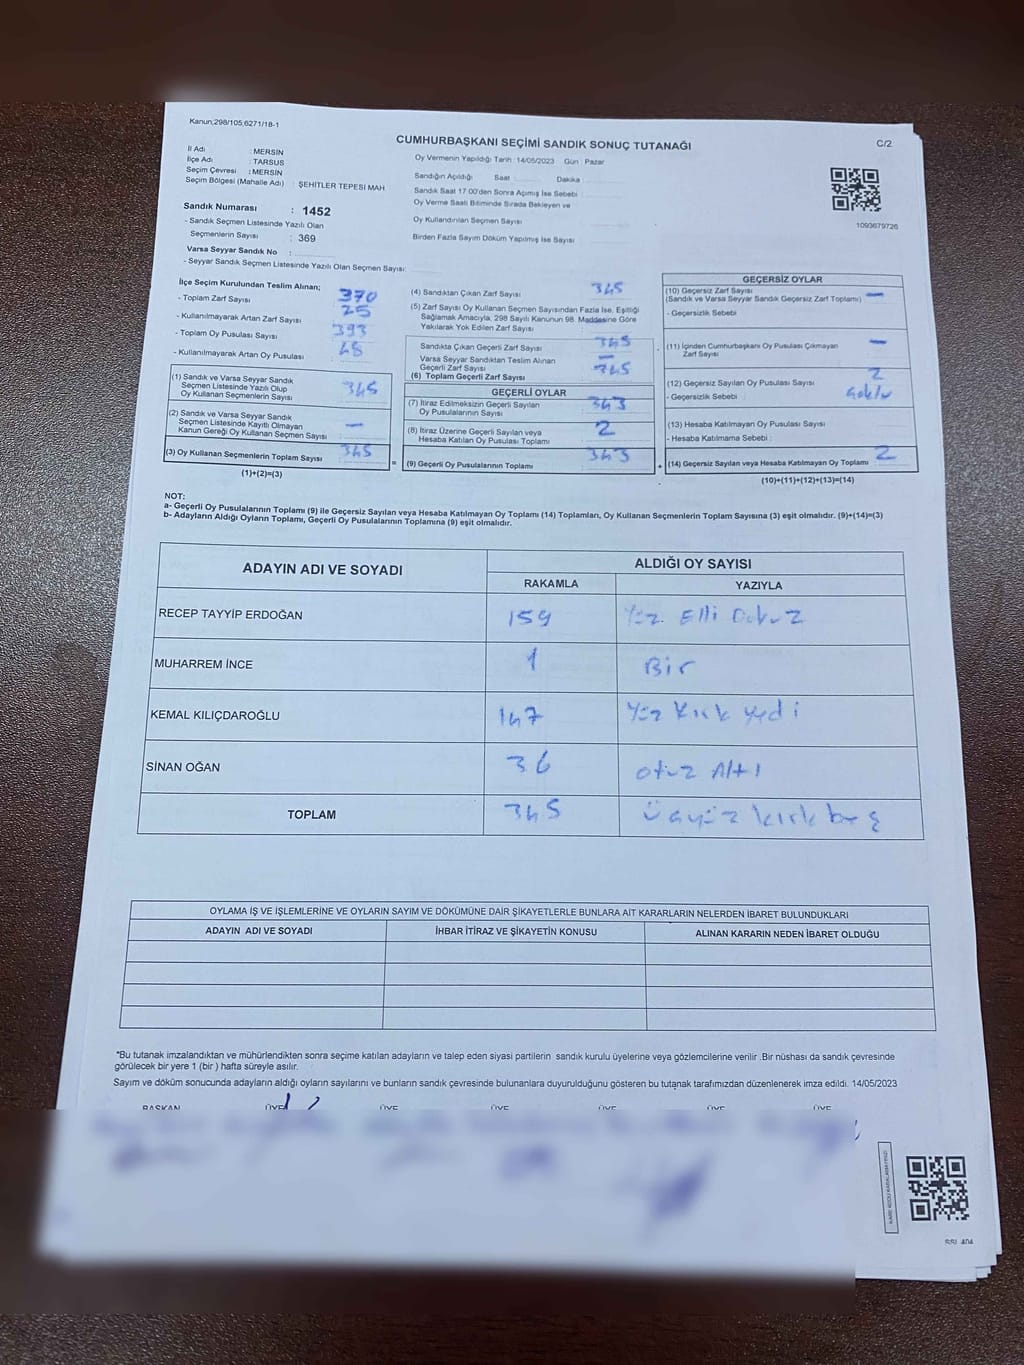 Kanun;298/105,6271/18-1
C/2
CUMHURBAŞKANI SEÇİMİ SANDIK SONUÇ TUTANAĞI
İl Adı : MERSİN
İlçe Adı : TARSUS
Seçim Çevresi : MERSİN
Seçim Bölgesi (Mahalle Adı) : ŞEHİTLER TEPESİ MAH
Sandık Numarası : 1452
- Sandık Seçmen Listesinde Yazılı Olan
Seçmenlerin Sayısı : 369
Varsa Seyyar Sandık No :
- Seyyar Sandık Seçmen Listesinde Yazılı Olan Seçmen Sayısı:
Oy Vermenin Yapıldığı Tarih :14/05/2023 Gün : Pazar
Sandığın Açıldığı Saat : Dakika :
Sandık Saat 17.00'den Sonra Açımış İse Sebebi :
Oy Verme Saati Bitiminde Sırada Bekleyen ve
Oy Kullandırılan Seçmen Sayısı
Birden Fazla Sayım Döküm Yapılmış İse Sayısı :
1093679726
İlçe Seçim Kurulundan Teslim Alınan;
- Toplam Zarf Sayısı 370
- Kullanılmayarak Artan Zarf Sayısı 25
- Toplam Oy Pusulası Sayısı 393
- Kullanılmayarak Artan Oy Pusulası 48
(1) Sandık ve Varsa Seyyar Sandık
Seçmen Listesinde Yazılı Olup
Oy Kullanan Seçmenlerin Sayısı 345
(2) Sandık ve Varsa Seyyar Sandık
Seçmen Listesinde Kayıtlı Olmayan
Kanun Gereği Oy Kullanan Seçmen Sayısı —
(3) Oy Kullanan Seçmenlerin Toplam Sayısı 345
(1)+(2)=(3)
=
(4) Sandıktan Çıkan Zarf Sayısı 345
(5) Zarf Sayısı Oy Kullanan Seçmen Sayısından Fazla İse, Eşitliği
Sağlamak Amacıyla, 298 Sayılı Kanunun 98. Maddesine Göre
Yakılarak Yok Edilen Zarf Sayısı
Sandıkta Çıkan Geçerli Zarf Sayısı 345
Varsa Seyyar Sandıktan Teslim Alınan
Geçerli Zarf Sayısı —
(6) Toplam Geçerli Zarf Sayısı 345
GEÇERLİ OYLAR
(7) İtiraz Edilmeksizin Geçerli Sayılan
Oy Pusulalarının Sayısı 343
(8) İtiraz Üzerine Geçerli Sayılan veya
Hesaba Katılan Oy Pusulası Toplamı 2
(9) Geçerli Oy Pusulalarının Toplamı 343
+
GEÇERSİZ OYLAR
(10) Geçersiz Zarf Sayısı
(Sandık ve Varsa Seyyar Sandık Geçersiz Zarf Toplamı) —
- Geçersizlik Sebebi
(11) İçinden Cumhurbaşkanı Oy Pusulası Çıkmayan
Zarf Sayısı —
(12) Geçersiz Sayılan Oy Pusulası Sayısı 2
- Geçersizlik Sebebi
(13) Hesaba Katılmayan Oy Pusulası Sayısı
- Hesaba Katılmama Sebebi :
(14) Geçersiz Sayılan veya Hesaba Katılmayan Oy Toplamı 2
(10)+(11)+(12)+(13)=(14)
NOT:
a- Geçerli Oy Pusulalarının Toplamı (9) ile Geçersiz Sayılan veya Hesaba Katılmayan Oy Toplamı (14) Toplamları, Oy Kullanan Seçmenlerin Toplam Sayısına (3) eşit olmalıdır. (9)+(14)=(3)
b- Adayların Aldığı Oyların Toplamı, Geçerli Oy Pusulalarının Toplamına (9) eşit olmalıdır.
ADAYIN ADI VE SOYADI ALDIĞI OY SAYISI
RAKAMLA YAZIYLA
RECEP TAYYİP ERDOĞAN 159 Yüz Elli Dokuz
MUHARREM İNCE 1 Bir
KEMAL KILIÇDAROĞLU 147 Yüz Kırk yedi
SİNAN OĞAN 36 otuz Altı
TOPLAM 345 üçyüz kırk beş
OYLAMA İŞ VE İŞLEMLERİNE VE OYLARIN SAYIM VE DÖKÜMÜNE DAİR ŞİKAYETLERLE BUNLARA AİT KARARLARIN NELERDEN İBARET BULUNDUKLARI
ADAYIN ADI VE SOYADI İHBAR İTİRAZ VE ŞİKAYETİN KONUSU ALINAN KARARIN NEDEN İBARET OLDUĞU
*Bu tutanak imzalandıktan ve mühürlendikten sonra seçime katılan adayların ve talep eden siyasi partilerin sandık kurulu üyelerine veya gözlemcilerine verilir .Bir nüshası da sandık çevresinde
görülecek bir yere 1 (bir ) hafta süreyle asılır.
Sayım ve döküm sonucunda adayların aldığı oyların sayılarını ve bunların sandık çevresinde bulunanlara duyurulduğunu gösteren bu tutanak tarafımızdan düzenlenerek imza edildi. 14/05/2023
BAŞKAN ÜYE ÜYE ÜYE ÜYE ÜYE ÜYE